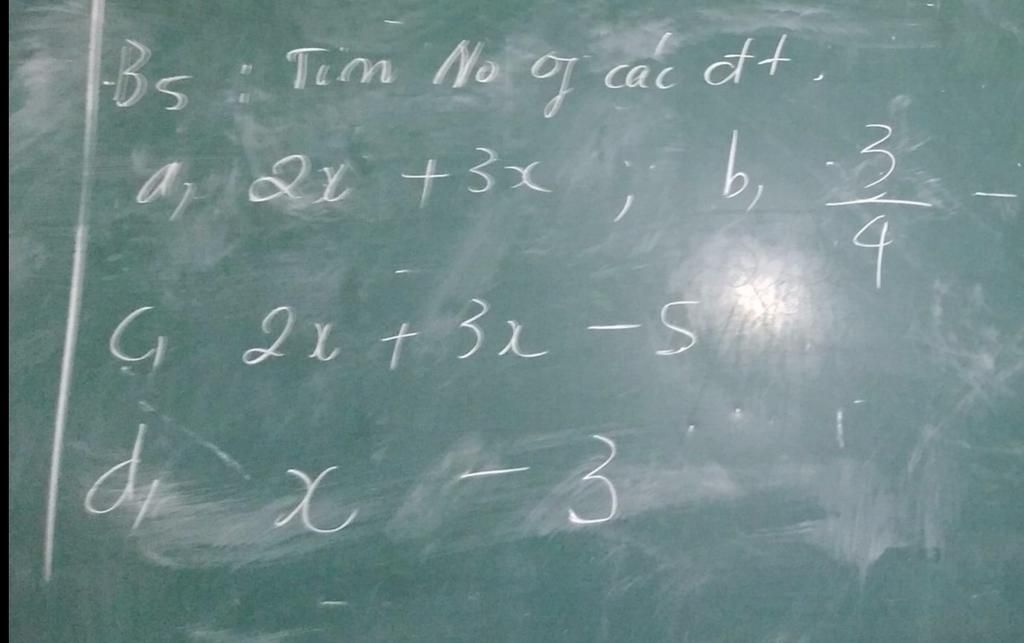 B5 : Tìm No of các đt.
a, 2x + 3x ; b, 3/4 -
c, 2x + 3x - 5
d, x - 3